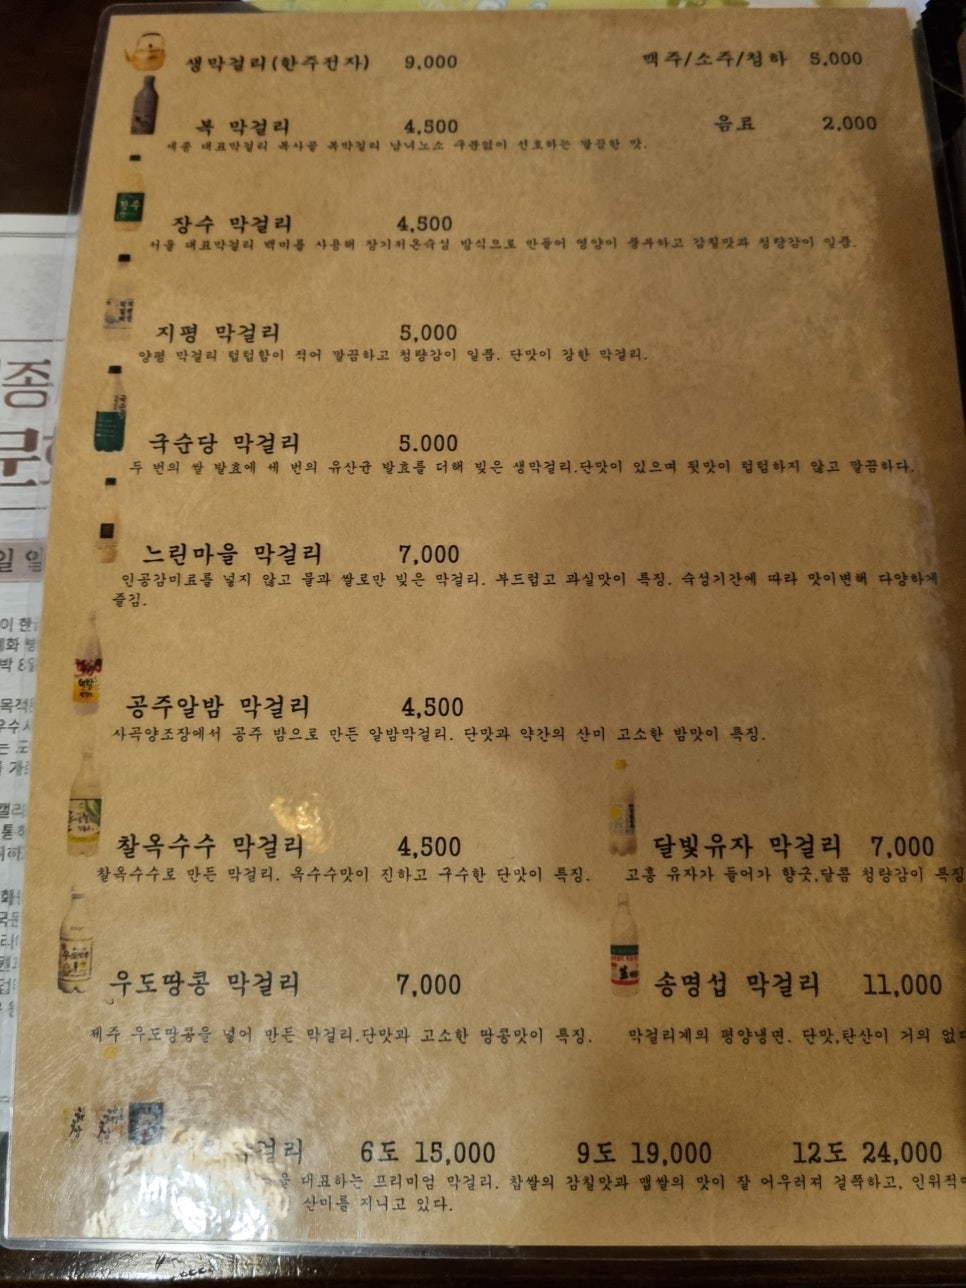 생막걸리(한주전자) 9,000 맥주/소주/청하 5,000
복 막걸리 4,500 음료 2,000
세종 대표막걸리 복사꽃 복막걸리 남녀노소 구관없이 선호하는 깔끔한 맛.
장수
장수 막걸리 4,500
서울 대표막걸리 백미를 사용해 장기저온숙성 방식으로 만들어 영양이 풍부하고 감칠맛과 청량감이 일품.
지평 막걸리 5,000
양평 막걸리 텁텁함이 적어 깔끔하고 청량감이 일품. 단맛이 강한 막걸리.
국순당 막걸리 5.000
두 번의 쌀 발효에 세 번의 유산균 발효를 더해 빚은 생막걸리.단맛이 있으며 뒷맛이 텁텁하지 않고 깔끔하다.
느린마을 막걸리 7,000
인공감미료를 넣지 않고 물과 쌀로만 빚은 막걸리. 부드럽고 과실맛이 특징. 숙성기간에 따라 맛이변해 다양하게
즐김.
공주알밤 막걸리 4,500
사곡양조장에서 공주 밤으로 만든 알밤막걸리. 단맛과 약간의 산미 고소한 밤맛이 특징.
찰옥수수 막걸리 4,500 달빛유자 막걸리 7,000
찰옥수수로 만든 막걸리. 옥수수맛이 진하고 구수한 단맛이 특징. 고흥 유자가 들어가 향긋,달콤 청량감이 특징
우도땅콩 막걸리 7,000 송명섭 막걸리 11,000
제주 우도땅콩을 넣어 만든 막걸리.단맛과 고소한 땅콩맛이 특징. 막걸리계의 평양냉면. 단맛,탄산이 거의 없다
걸리 6도 15,000 9도 19,000 12도 24,000
을 대표하는 프리미엄 막걸리. 찹쌀의 감칠맛과 맵쌀의 맛이 잘 어우러져 걸쭉하고, 인위적
산미를 지니고 있다.
종
일 일